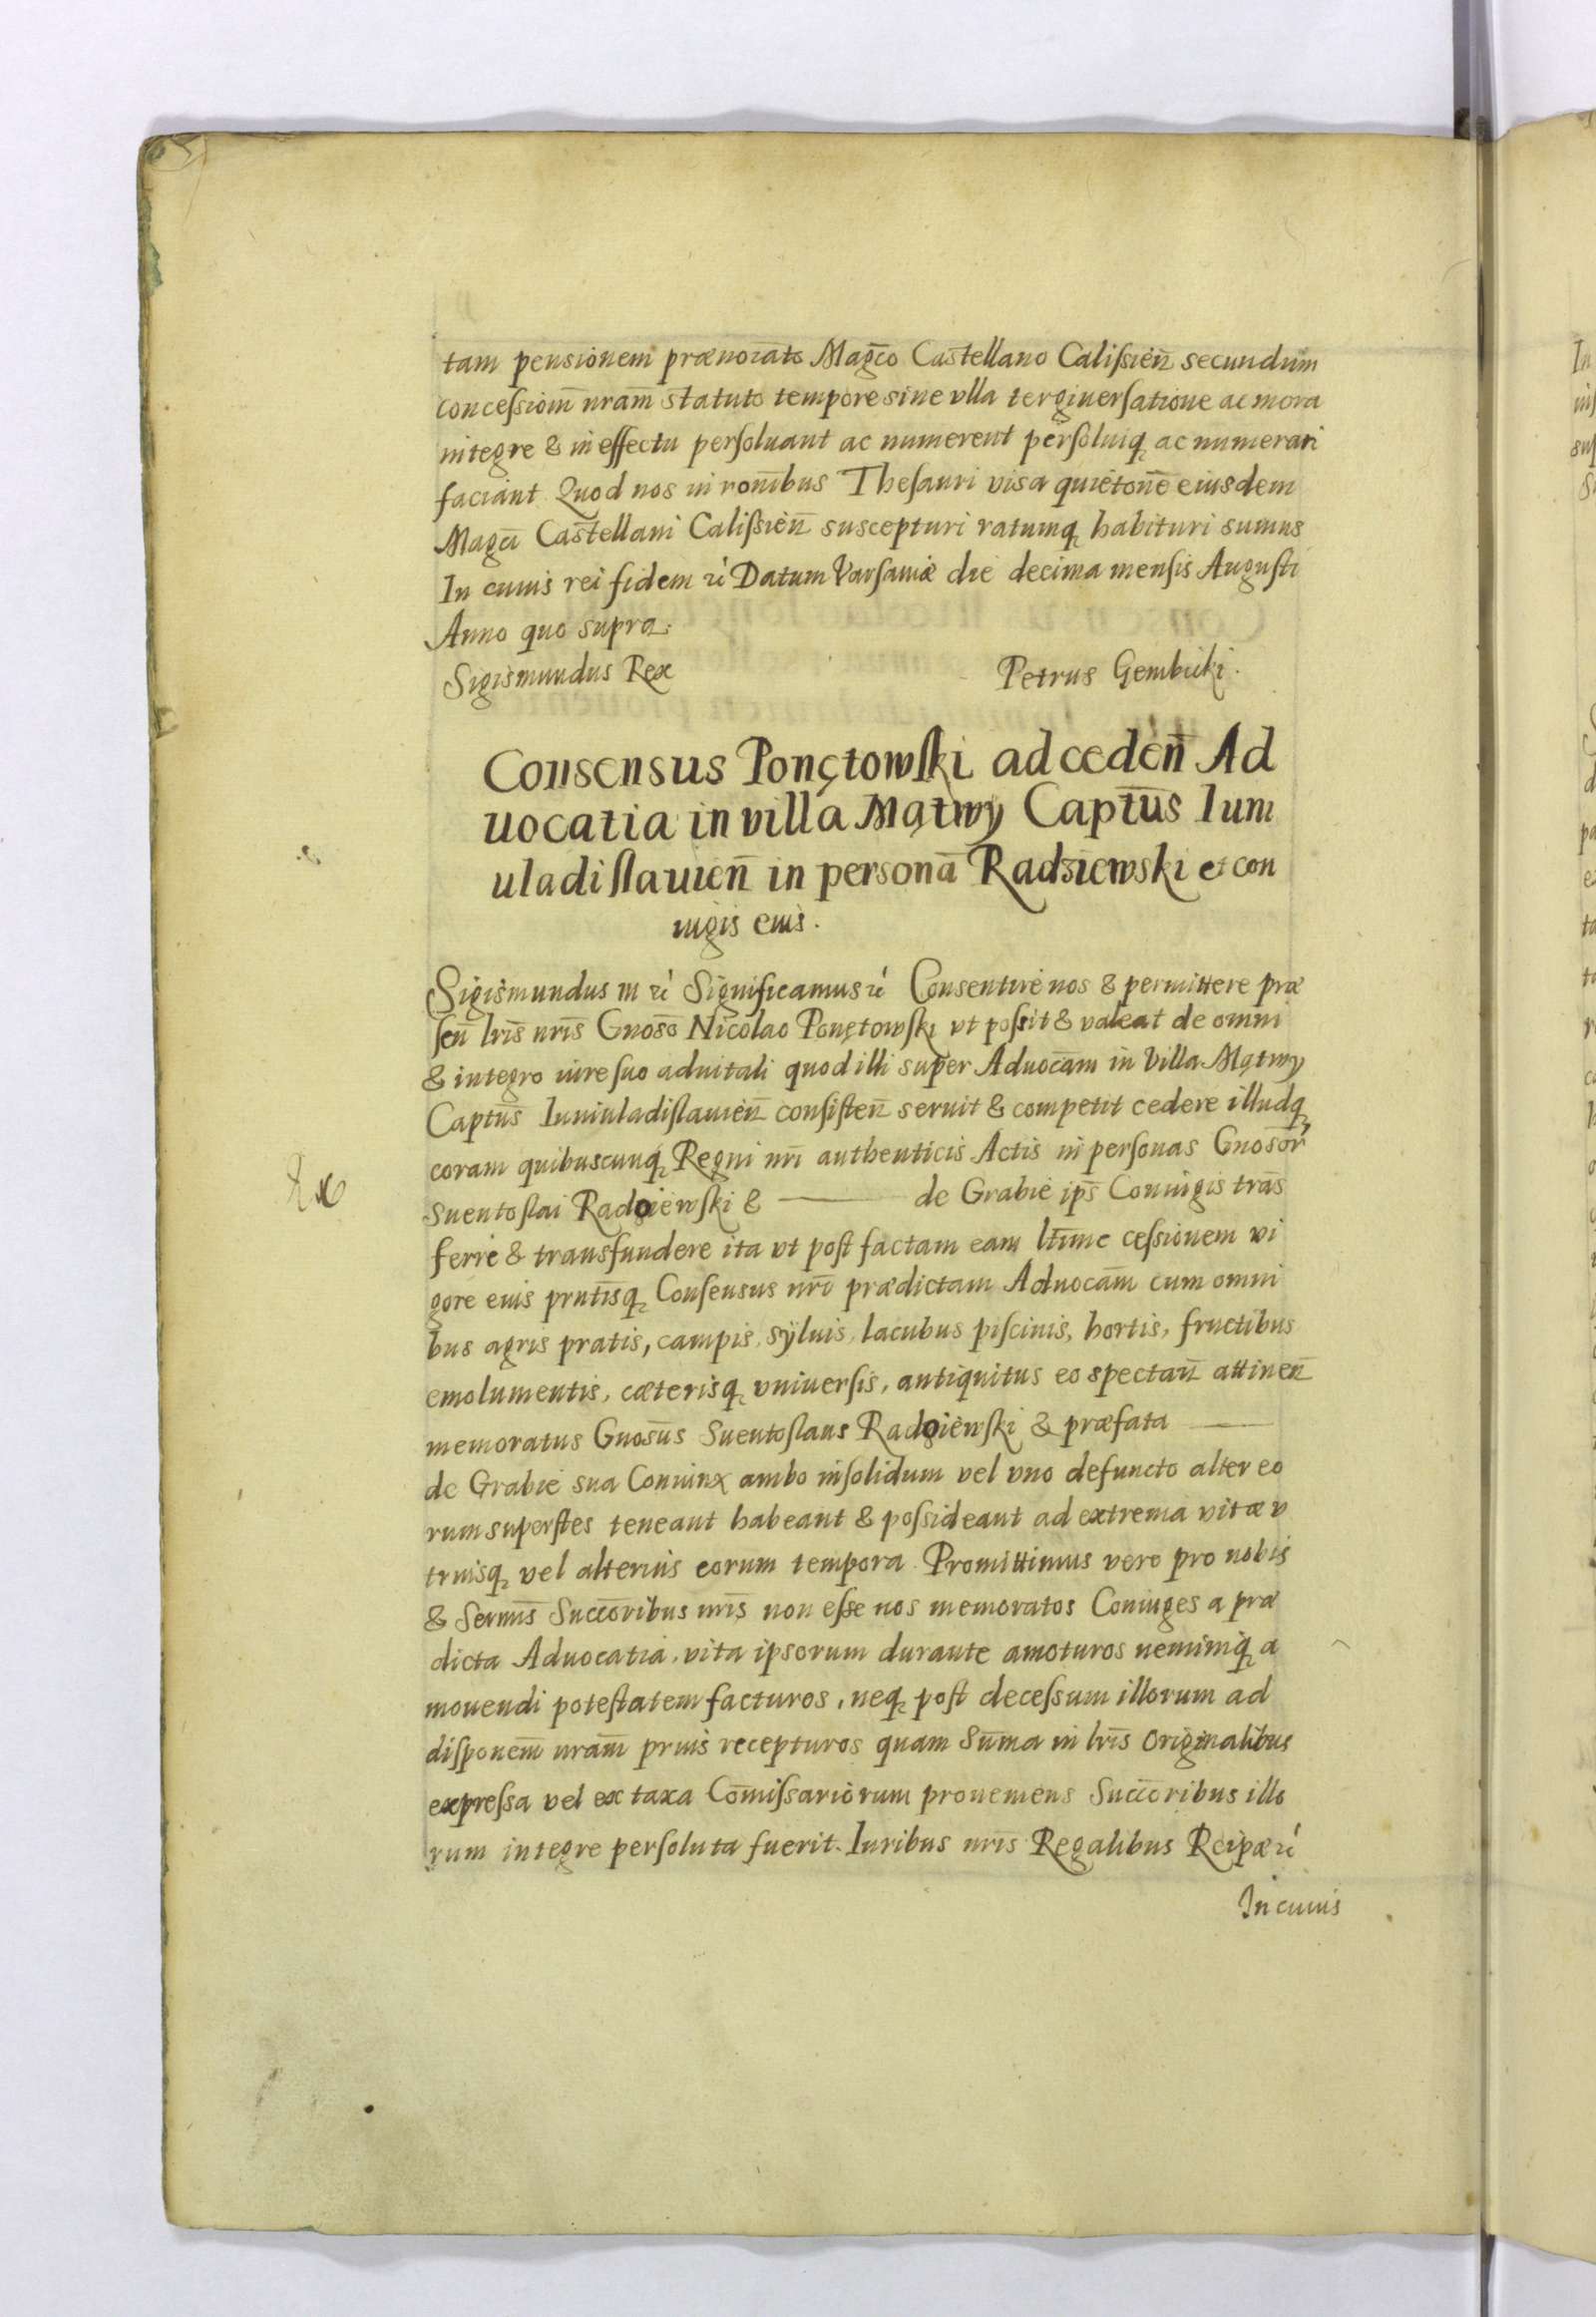 tam pensionem prænotato Mag̃co Castellano Calissień secundum
concessiom̃ nram̃ statuto tempore sine vlla tergiuersatione ac mora
integre & in effectu persoluant ac numerent persoluiq, ac numerari
faciant Quod nos in ronībus Thesauri visa quietone̅ eiusdem
Magc̃i Castellani Calissień suscepturi ratumq, habituri sumus
In cuius rei fidem rć Datum Varsauiæ die decima mensis Augusti
Anno quo supra.
Sigismundus Rex Petrus Gembicki.
Consensus Ponętowski ad cedeñ Ad
uocatia in villa Mątwy Captũs Iuni
uladislauień in personã Radziewski et con
iugis eius.
Sigismundus III rć Significamus rć Consentire nos & permittere præ
señ lris̃ nris̃ Gnosõ Nicolao Ponętowski vt possit & valeat de omni
& integro iure suo aduitali quod illi super Aduocãm in Villa Mątwy
Captũs Iuniuladislauień consisteñ seruit & competit cedere illudq,
coram quibuscunq, Regni nrĩ authenticis Actis in personas Gnosor̃
Suentoslai Radoiewski & ——— de Grabie ips̃ Coniugis trãs
ferre & transfundere ita vt post factam eam ltĩme cessionem vi
gore eius prntĩsq, Consensus nrĩ prædictam Aduocãm cum omni
bus agris pratis, campis, syluis, lacubus piscinis, hortis, fructibus
emolumentis, cæterisq, vniuersis, antiquitus eo spectañ attineñ
memoratus Gnosũs Suentoslaus Radoiewski & præfata ———
de Grabie sua Coniunx ambo insolidum vel vno defuncto alter eo
rum superstes teneant habeant & possideant ad extrema vitæ v
triusq, vel alterius eorum tempora Promittimus vero pro nobis
& Sermĩs Succõribus nris̃ non esse nos memoratos Coniuges a præ
dicta Aduocatia, vita ipsorum durante amoturos neminiq, a
mouendi potestatem facturos, neq, post decessum illorum ad
disponem̃ nram̃ prius recepturos quam Sum̃a in lris̃ Originalibus
expressa vel ex taxa Com̃issariorum proueniens Succõribus illo
rum integre persoluta fuerit. Iuribus nris̃ Regalibus Reipæ rć
In cuius